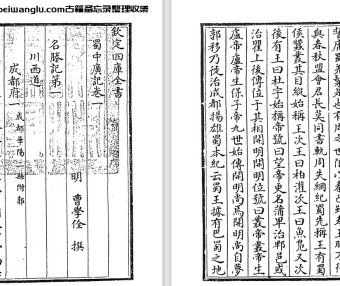 beiwanglu.com古籍备忘录整理收集
欽定四庫全書
蜀中廣記卷一
明 曹學佺 撰
名勝記第一
川西道
成都府一 成都華陽二縣附郭
與春秋盟會君長莫同書軌周失綱紀蜀先稱王有蜀
侯蠶叢其目縱始稱王次王曰柏灌次王曰魚鳧又次
後有王曰杜宇始稱帝號曰望帝更名蒲卑治郫邑或
治瞿上後傳位于其相開明開明位號曰叢帝叢帝生
盧帝盧帝生保子帝九世始傳開明尚焉開明尚自夢
郭移乃徙治成都揚雄蜀本紀云蜀王據有巴蜀之地